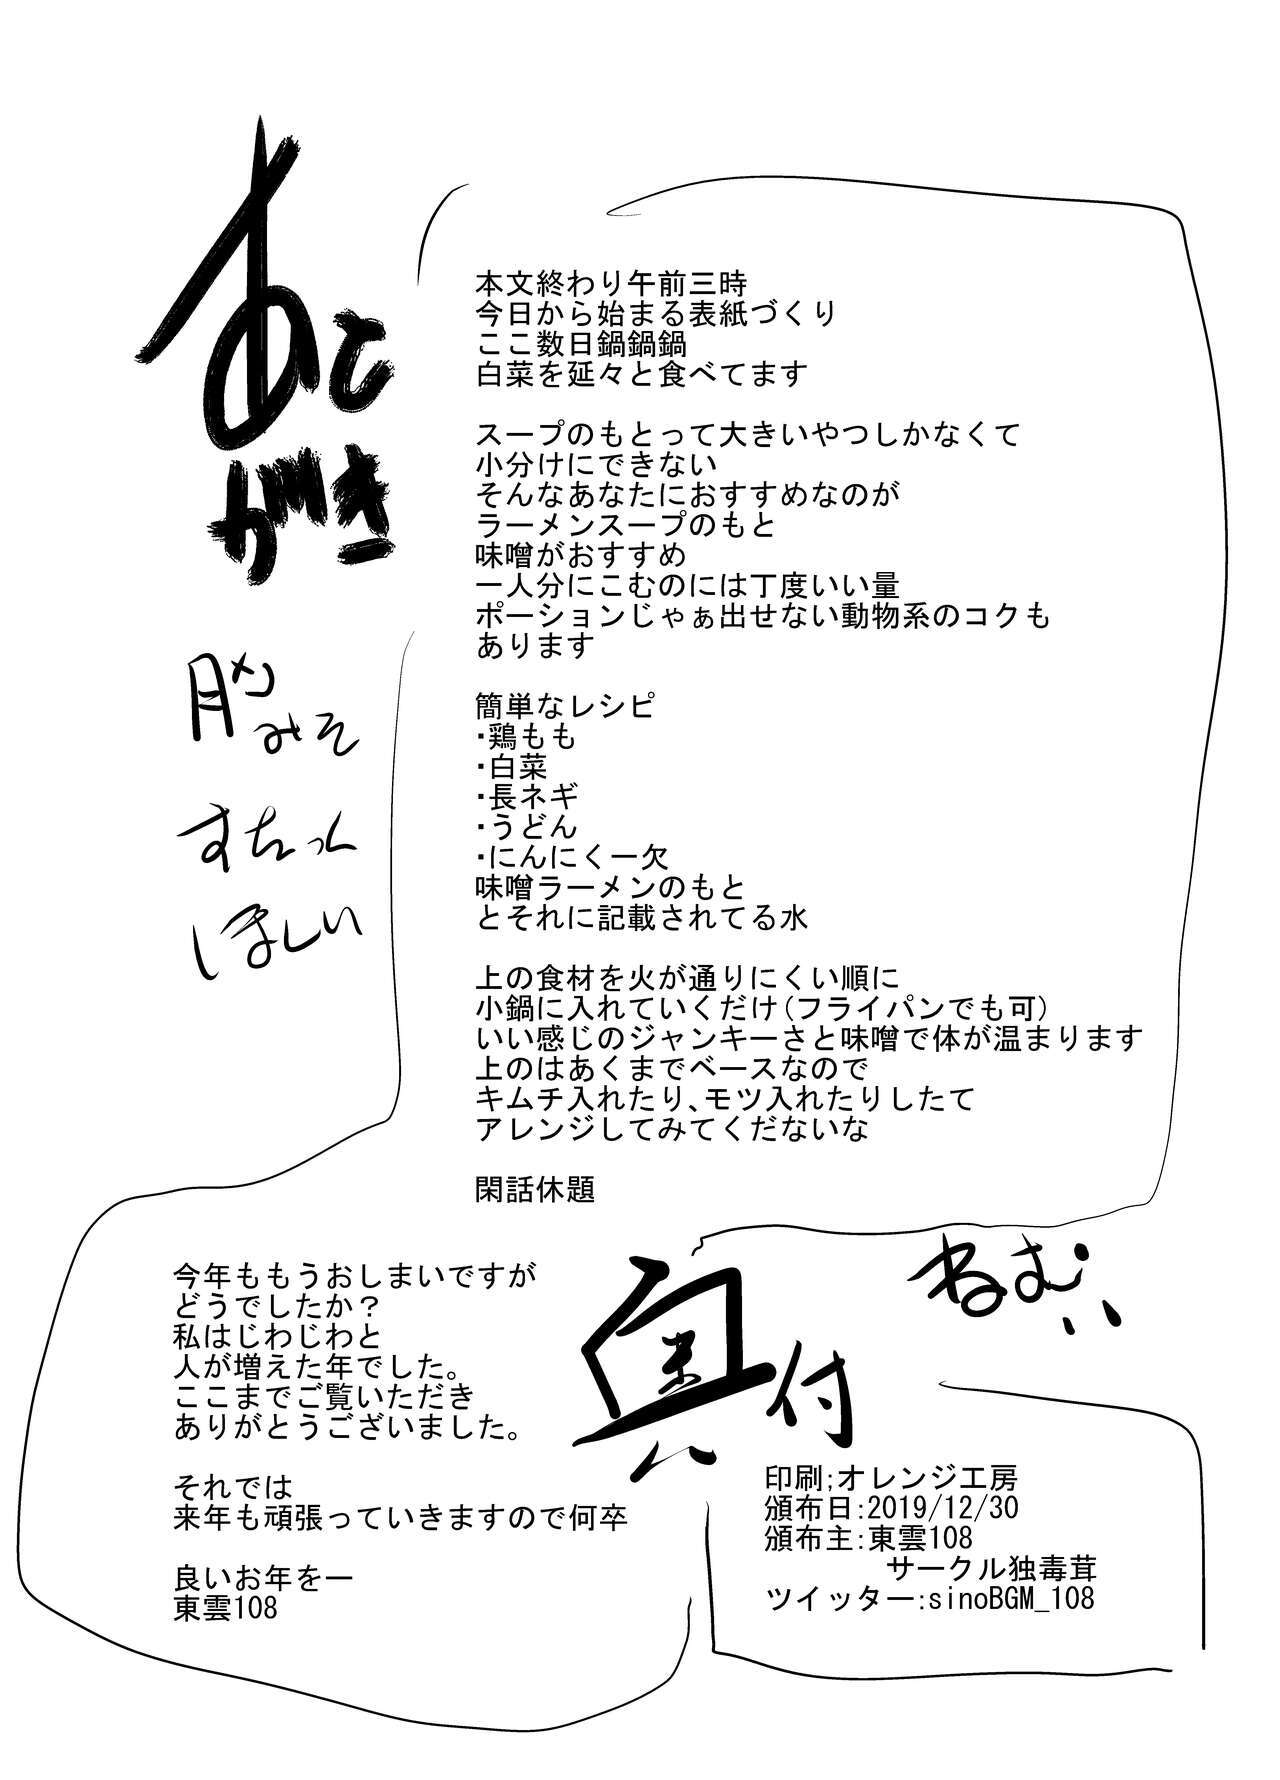 あとがき
本文終わり午前三時
今日から始まる表紙づくり
ここ数日鍋鍋鍋
白菜を延々と食べてます
スープのもとって大きいやつしかなくて
小分けにできない
そんなあなたにおすすめなのが
ラーメンスープのもと
味噌がおすすめ
一人分にこむのには丁度いい量
ポーションじゃぁ出せない動物系のコクも
あります
簡単なレシピ
・鶏もも
・白菜
・長ネギ
・うどん
・にんにく一欠
味噌ラーメンのもと
とそれに記載されてる水
上の食材を火が通りにくい順に
小鍋に入れていくだけ(フライパンでも可)
いい感じのジャンキーさと味噌で体が温まります
上のはあくまでベースなので
キムチ入れたり、モツ入れたりしたて
アレンジしてみてくだないな
閑話休題
みそ
すたっく
ほしい
ねむい
今年ももうおしまいですが
どうでしたか?
私はじわじわと
人が増えた年でした。
ここまでご覧いただき
ありがとうございました。
それでは
来年も頑張っていきますので何卒
良いお年をー
東雲108
奥付
印刷;オレンジ工房
頒布日:2019/12/30
頒布主:東雲108
サークル独毒茸
ツイッター:sinoBGM_108